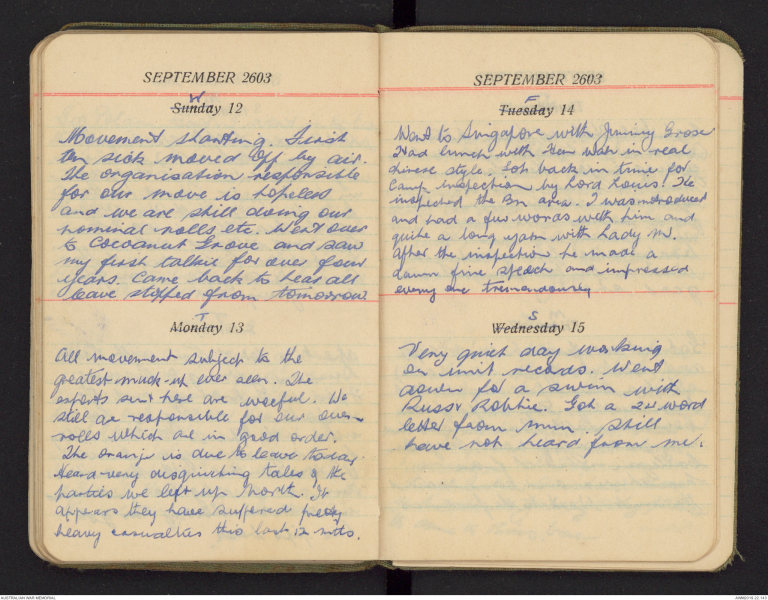 SEPTEMBER 2603
W
Sunday 12
Movement starting. First
ten sick moved off by air.
The organisation responsible
for our move is hopeless
and we are still doing our
nominal rolls etc. Went over
to Cocoanut Grove and saw
my first talkie for over four
years. Came back to hear all
leave stopped from tomorrow
T
Monday 13
All movement subject to the
greatest muck-up ever seen. The
experts sent here are woeful. We
still are responsible for our own
rolls which are in good order.
The Oranje is due to leave today.
Heard very disquieting tales of the
parties we left up North. It
appears they have suffered pretty
heavy casualties this last 12 mths.
SEPTEMBER 2603
F
Tuesday 14
Went to Singapore with Jimmy Grose
Had lunch with in real
chinese style. Got back in time for
Camp inspection by Lord Louis. He
inspected the Bn area. I was introduced
and had a few words with him and
quite a long yarn with Lady M.
After the inspection he made a
damn fine speech and impressed
every one tremendously
S
Wednesday 15
Very quiet day working
on unit records. Went
down for a swim with
Russ & Robbie. Got a 24 word
letter from Mum. Still
have not heard from me.
AUSTRALIAN WAR MEMORIAL